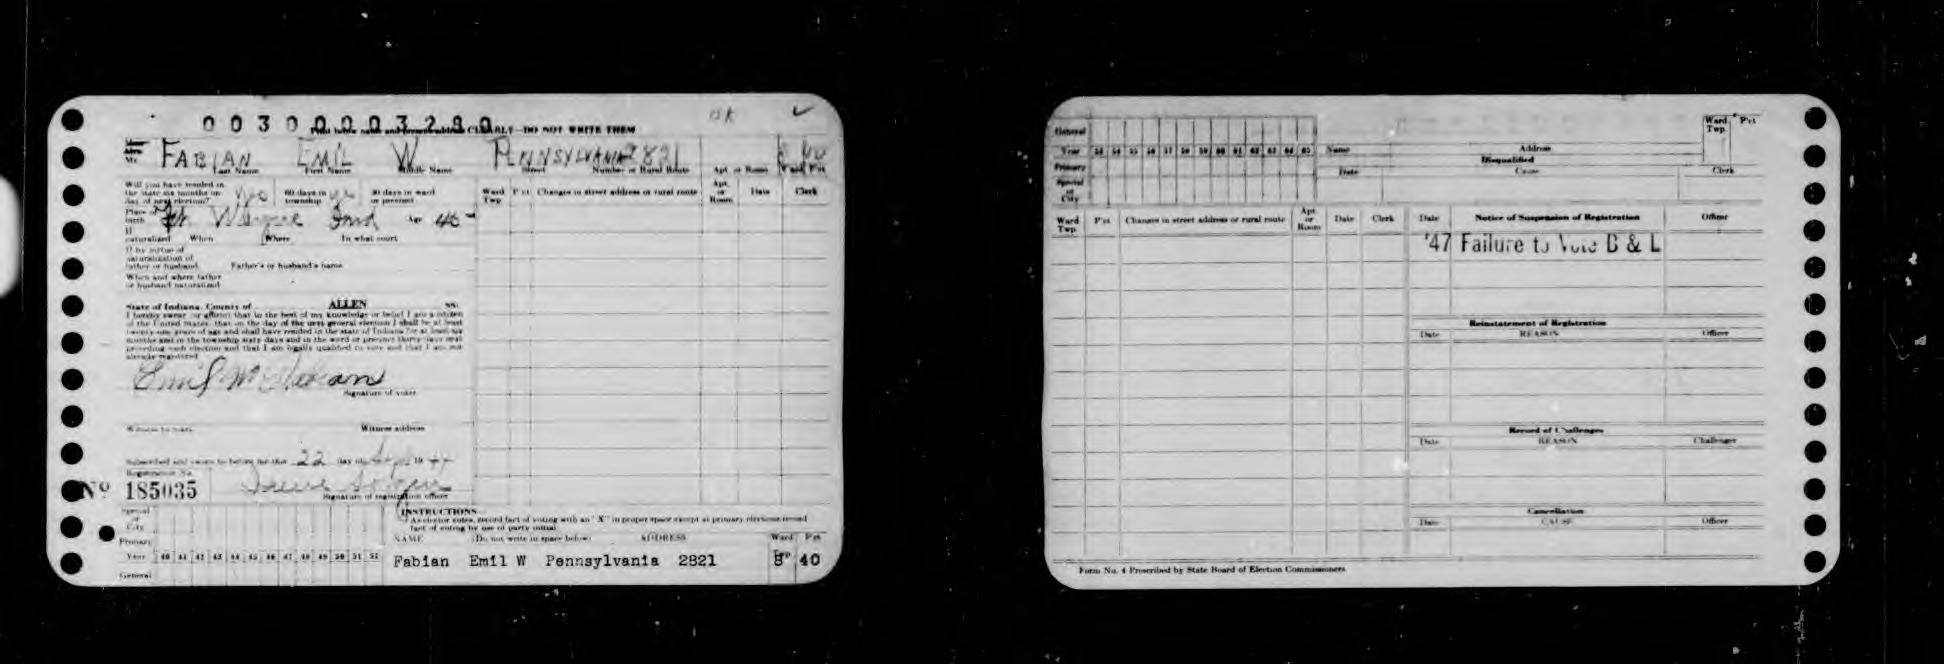 003000003280
OK
Print below name and present address CLEARLY—DO NOT WRITE THEM
Mr. FABIAN EMIL W PENNSYLVANIA 2821
Last Name First Name Middle Name Street Number or Rural Route Apt or Room Ward Pct
Will you have resided in
the state six months on
day of next election? Yes 60 days in
township yes 30 days in ward
or precinct
Place of
birth Ft. Wayne Ind Age 46
If
naturalized When Where In what court
If by virtue of
naturalization of
father or husband Father's or husband's name
When and where father
or husband naturalized
State of Indiana, County of ALLEN ss:
I hereby swear (or affirm) that to the best of my knowledge or belief I am a citizen
of the United States, that on the day of the next general election I shall be at least
twenty-one years of age and shall have resided in the state of Indiana for at least six
months and in the township sixty days and in the ward or precinct thirty days next
preceding such election and that I am legally qualified to vote and that I am not
already registered
Emil W Fabian
Signature of voter
Witness to mark Witness address
Subscribed and sworn to before me this 22 day of 19 44
Registration No.
No 185035 Irene
Signature of registration officer
Special
or
City
Primary
Year 40 41 42 43 44 45 46 47 48 49 50 51 52
General
Ward
Twp Pct Changes in street address or rural route Apt.
or
Room Date Clerk
INSTRUCTIONS
As elector votes, record fact of voting with an "X" in proper space except at primary elections record
fact of voting by use of party initial
NAME (Do not write in space below) ADDRESS Ward Pct
Fabian Emil W Pennsylvania 2821 8 40
General
Year 53 54 55 56 57 58 59 60 61 62 63 64 65
Primary
Special
or
City
Name Address
Disqualified
Date Cause Clerk
Ward
Twp Pct
Ward
Twp. Pct Changes in street address or rural route Apt
or
Room Date Clerk
Date Notice of Suspension of Registration Officer
'47 Failure to Vote B & L
Reinstatement of Registration
Date REASON Officer
Record of Challenges
Date REASON Challenger
Cancellation
Date CAUSE Officer
Form No. 4 Prescribed by State Board of Election Commissioners